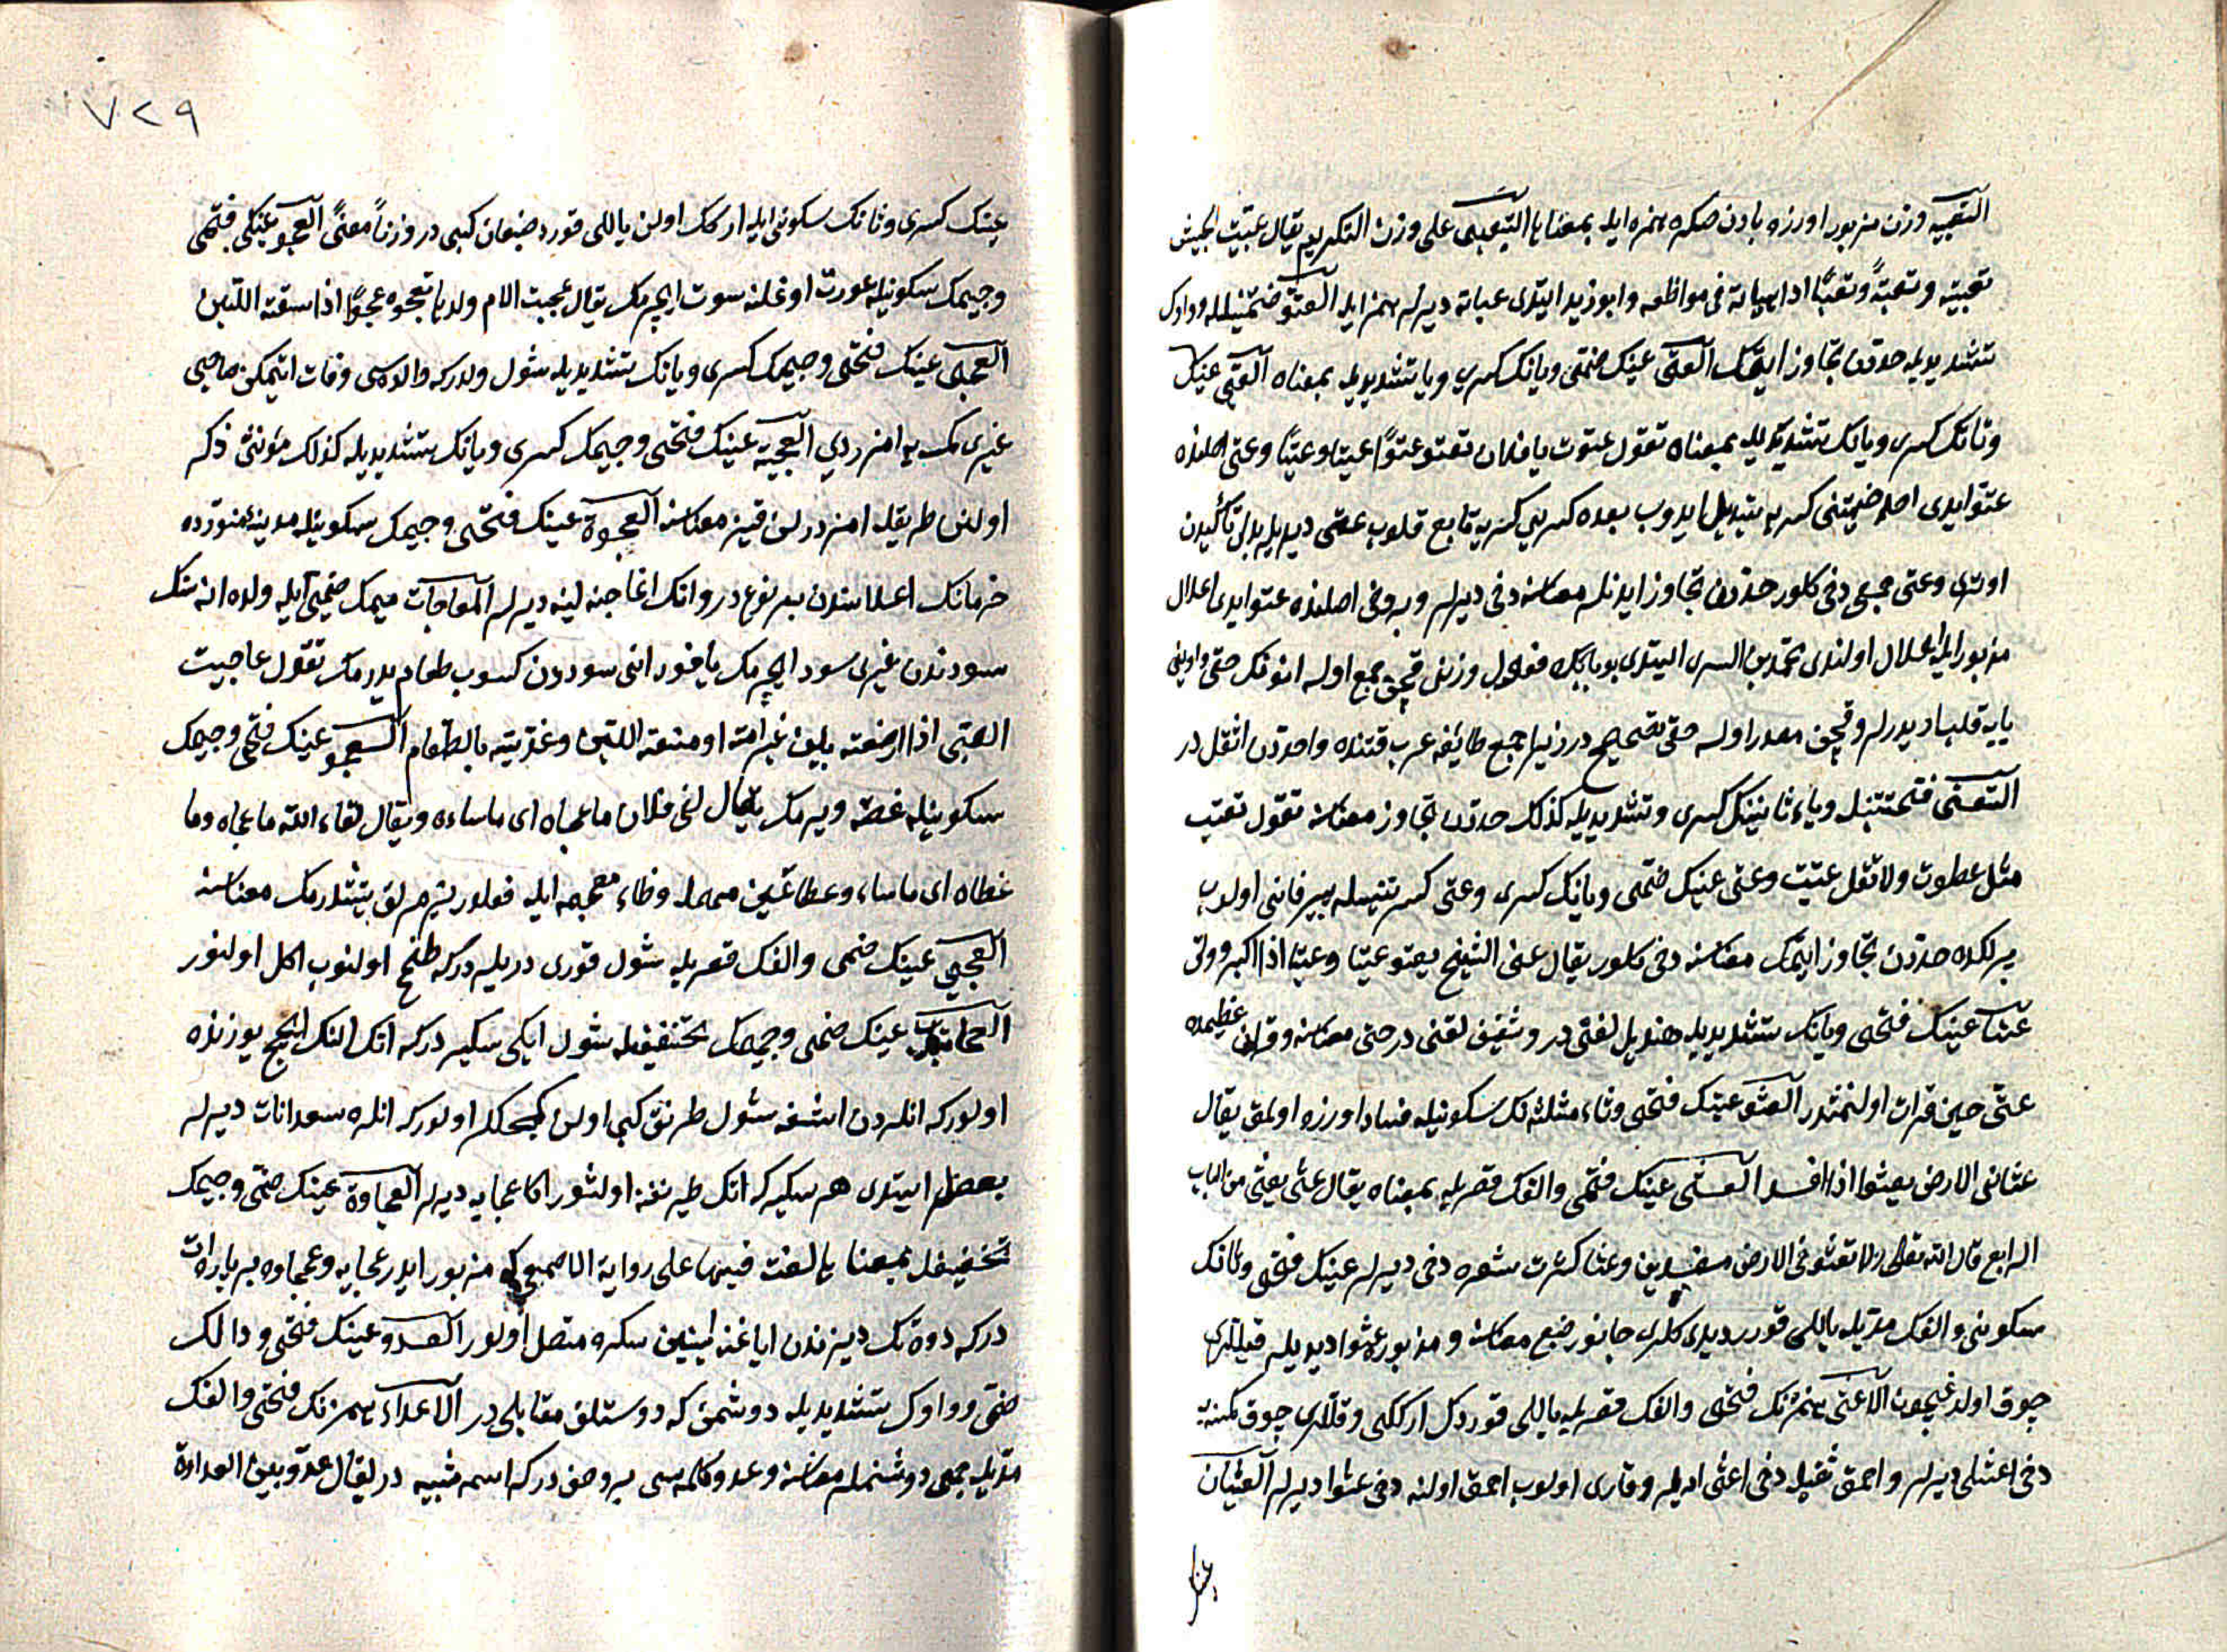 التعبيه وزن مزبور اوزره بادن صكره همزه ايله بمعناها التعبى على وزن التكريم يقال عبيت الجيش
تعبية وتعبئة وتعبيًا اذا هيأته فى مواضعه وابو زيد ايتدى عبأته ديرلر همز ايله العتو ضمتينله وواوك
تشديديله حددن تجاوز ايتمك العتى عينك ضمى ويانك كسرى ويا تشديديله بمعناه العتى عينك
وتانك كسرى ويانك تشديديله بمعناه تقول عتوت يا فلان تعتو عتوًا عتيا وعتيًا وعتى اصلنده
عتو ايدى احد ضمتينى كسره يه تبديل ايدوب بعده كسره يى كسره يه تابع قلوب عتى ديديلر تأكيدن
اوترى وعتى جمعى دخى كلور حددن تجاوز ايدنلر معناسنه دخى ديرلر وبو دخى اصلنده عتو ايدى اعلال
مزبور ايله اعلال اولندى محمد بن السرى ايتدى بو بابكه فعول وزنى قچن جمع اوله انونك حقى واوينى
يايه قلبدر ديرلر وقچن مصدر اولسه حقى تصحيحدر زيرا جمع طائفه عرب قتنده واحددن اثقلدر
التعتى فتحتينله وياء ثانينك كسرى وتشديديله كذلك حددن تجاوز معناسنه تقول تعتيت
مثل عطوت ولا تقل عتيت وعتى عينك ضمى ويانك كسرى وعتى كسرتينله پير فانى اولوب
پيرلكده حددن تجاوز ايتمك معناسنه دخى كلور يقال عتى الشيخ يعتو عتيا وعتيا اذا اكبر وولى
عتى عينك فتحى ويانك تشديديله هذيل لغتى در وثقيف لغتى در حتى معناسنه وقرآن عظيمده
عتى حين قرات اولنمشدر العثو عينك فتحى وثاء مثلثه نك سكونيله فساد اوزره اولمق يقال
عثا فى الارض يعثو اذا افسد العثى عينك فتحى والفك قصريله بمعناه يقال عثى يعثى من الباب
الرابع قال الله تعالى ولا تعثوا فى الارض مفسدين وعثا كثرت شعره دخى ديرلر عينك فتحى وثانك
سكونى والفك مديله ياللى قورد ديدكلرى جانور ضبع معناسنه ومزبوره عثوا ديديلر قيللرى
چوق اولدغيچون الاعثى همزه نك فتحى والفك قصريله ياللى قوردك اركگى وقللرى چوق كمسنه
دخى اعثى ديرلر واحمق ثقيله دخى اعثى ديرلر وقارى اولوب احمق اولنه دخى عثوا ديرلر العثيان
عينك
٧٢٩
عينك كسرى وثانك سكونى ايله اركك اولن ياللى قورد ضبعان كبى در وزناً ومعنىً العجو عينك فتحى
وجيمك سكونيله عورت اوغلنه سوت ايچرمك يقال عجت الام ولدها تعجوه عجوًا اذا سقته اللبن
العجى عينك فتحى وجيمك كسرى ويانك تشديديله شول ولددركه والده سى وفات ايتمكن صاحبى
غيرى كمسه يه امزردى العجية عينك فتحى وجيمك كسرى ويانك تشديديله كذلك مؤنثى ذكر
اولنن طريقله امزدرلن قيز معناسنه العجوة عينك فتحى وجيمك سكونيله مدينه منوره ده
خرمانك اعلاسندن بر نوعدر وانك اغاجنه لينه ديرلر المعاجات ميمك ضمى ايله ولده اناسنك
سودندن غيرى سود ايچرمك ياخود انى سوددن كسوب طعام يدرمك تقول عاجيت
الصبى اذا ارضعته بلبن غير امه او منعته اللبن وغذيته بالطعام العجو عينك فتحى وجيمك
سكونيله غصه ويرمك يقال لقى فلان ما عجاه اى ما ساءه ويقال لقاه الله ما عجاه وما
عظاه اى ما ساء وعظا عين مهمله وظاء معجمه ايله قولور يرمرلق يتشدرمك معناسنه
العجى عينك ضمى والفك قصريله شول قورى دريلردركه طبخ اولنوب اكل اولنور
العجاية عينك ضمى وجيمك تخفيفيله شول ايكى سكيردركه اتك النك ايچ يوزنده
اولوركه انلردن اشغه شول طرنق كبى اولن كمكلر اولوركه انلره سعدانات ديرلر
بعضلر ايتدى هر سكيركه اتك طيرنغنه اولشور اكا عجايه ديرلر العجاوة عينك ضمى وجيمك
تخفيفيله بمعناها لغت فيها على رواية الاصمعى كه مزبور ايدر عجايه وعجاوه بر پاره ات
دركه دوه نك ديزندن اياغنه اينين سكره متصل اولور العدو عينك فتحى ودالك
ضمى وواوك تشديديله دوشمن كه دوستلق مقابلى در الاعداء همزه نك فتحى والفك
مديله جمعى دوشمنلر معناسنه وعدو كلمه سى بر وصفدركه اسمه شبيه در يقال عدو بين العداوة